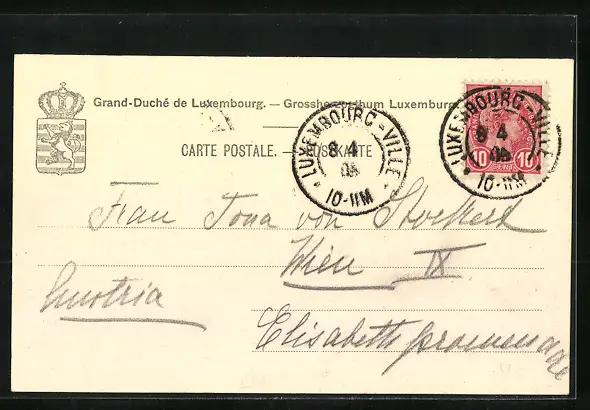 Grand-Duché de Luxembourg. — Grossherzogthum Luxemburg
CARTE POSTALE. — POSTKARTE
LUXEMBOURG-VILLE
8 4
10-11M
LUXEMBOURG-VILLE
8 4
10-11M
10 CENT 10
Frau Tona von
Wien IX
Austria
Elisabethpromenade